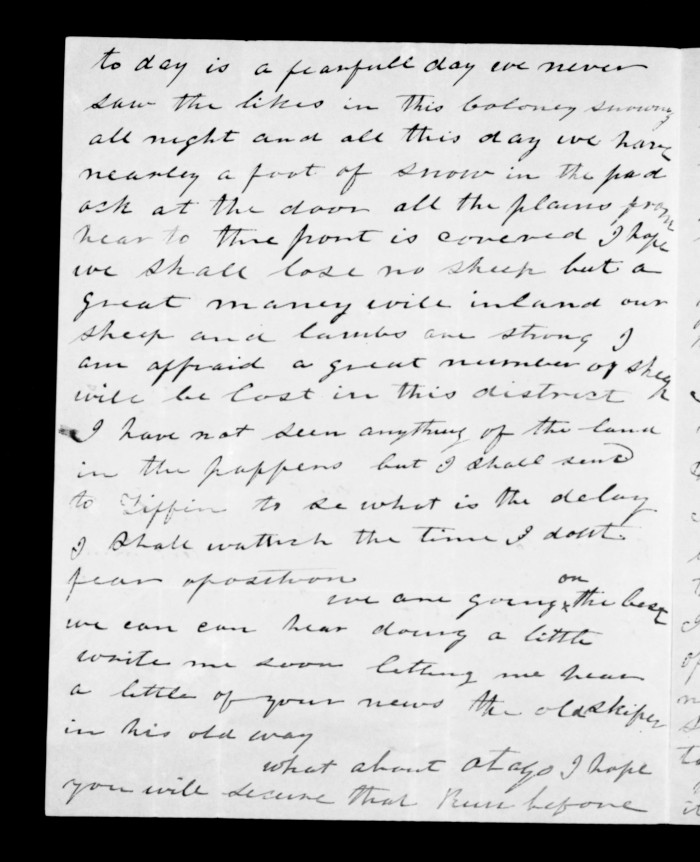 to day is a fearfull day we never
saw the likes in this Coloney snowing
all night and all this day we have
nearley a foot of snow in the pad
ock at the door all the plains from
hear to thre point is covered I hope
we shall lose no sheep but a
great maney will inland our
sheep and lambs are strong I
am affraid a great number of sheep
will be lost in this district
I have not seen anything of the land
in the pappers but I shall send
to Tiffin to se what is the delay
I shall wattsch the time I dont
fear oposition
on
we are going the best
we can can hear doing a little
write me soon letting me hear
a little of your news the old skiper
in his old way
what about otago I hope
you will secure that Run before